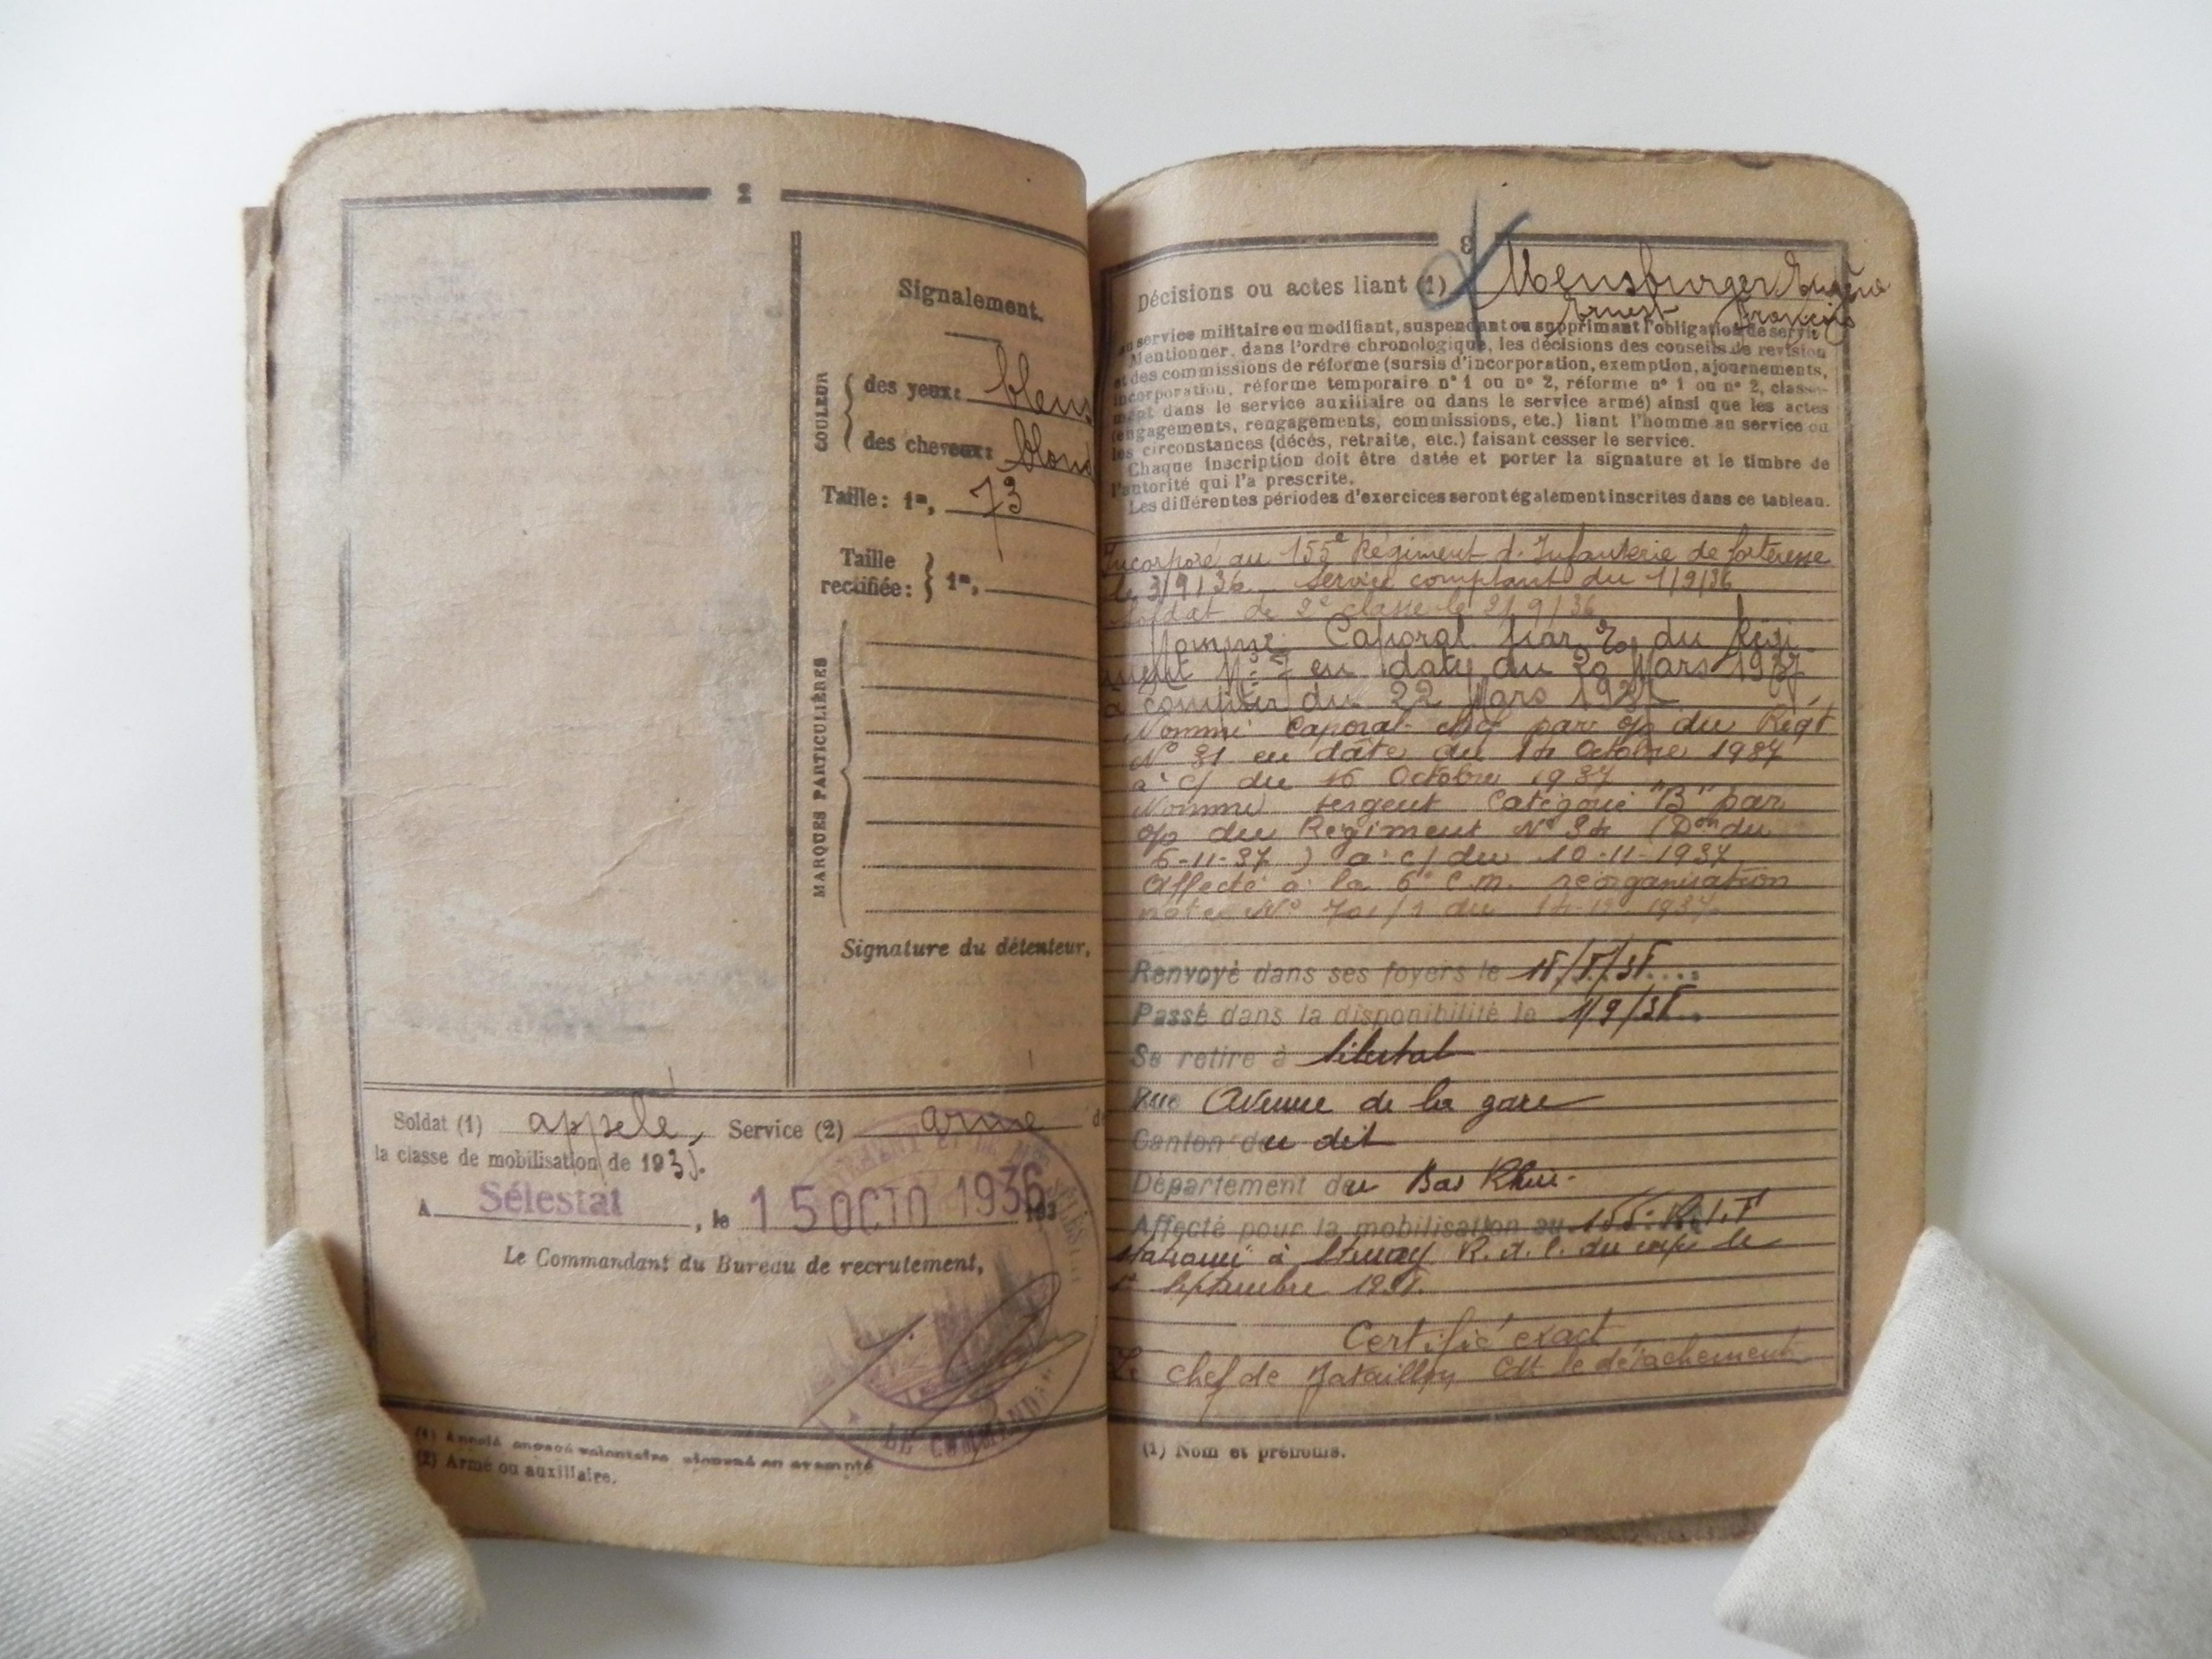 2
Signalement.
COULEUR
des yeux: bleus
des cheveux: blond
Taille: 1m, 73
Taille
rectifiée: 1m,
MARQUES PARTICULIÈRES
Signature du détenteur,
Soldat (1) appelé, Service (2) armé de
la classe de mobilisation de 193
A Sélestat, le 15 OCTO 1936 193
Le Commandant du Bureau de recrutement,
LE COMMANDANT
(1) Appelé engagé volontaire
(2) Armé ou auxiliaire.
3
Décisions ou actes liant (1)
Ernest François
au service militaire ou modifiant, suspendant ou supprimant l'obligation de servir
Mentionner, dans l'ordre chronologique, les décisions des conseils de revision
et des commissions de réforme (sursis d'incorporation, exemption, ajournements,
incorporation, réforme temporaire n° 1 ou n° 2, réforme n° 1 ou n° 2, classe-
ment dans le service auxiliaire ou dans le service armé) ainsi que les actes
(engagements, rengagements, commissions, etc.) liant l'homme au service ou
les circonstances (décès, retraite, etc.) faisant cesser le service.
Chaque inscription doit être datée et porter la signature et le timbre de
l'autorité qui l'a prescrite.
Les différentes périodes d'exercices seront également inscrites dans ce tableau.
Incorporé au 155e Régiment d'Infanterie de forteresse
le 3/9/36. Service comptant du 1/9/36
Soldat de 2e classe le 2/9/36
Nommé Caporal par du Régi-
ment N° 7 en date du 20 Mars 1937
à compter du 22 Mars 1937
Nommé Caporal chef par o/o du Regt
N° 31 en date du 14 Octobre 1937
à c/ du 16 Octobre 1937
Nommé sergent Catégorie "B" par
o/o du Régiment N° 34 (Don du
6-11-37) à c/ du 10-11-1937
Affecté à la 6e C.M. réorganisation
note N° 701/1 du 1937
Renvoyé dans ses foyers le
Passé dans la disponibilité le 1/9/38
Se retire à Sélestat
Rue Avenue de la gare
Canton du dit
Département du Bas Rhin
Affecté pour la mobilisation au 155e R.I.F
stationné à Stenay R.d.l. du corps le
1er Septembre
Certifié exact
Le chef de Bataillon Cdt le détachement
(1) Nom et prénoms.